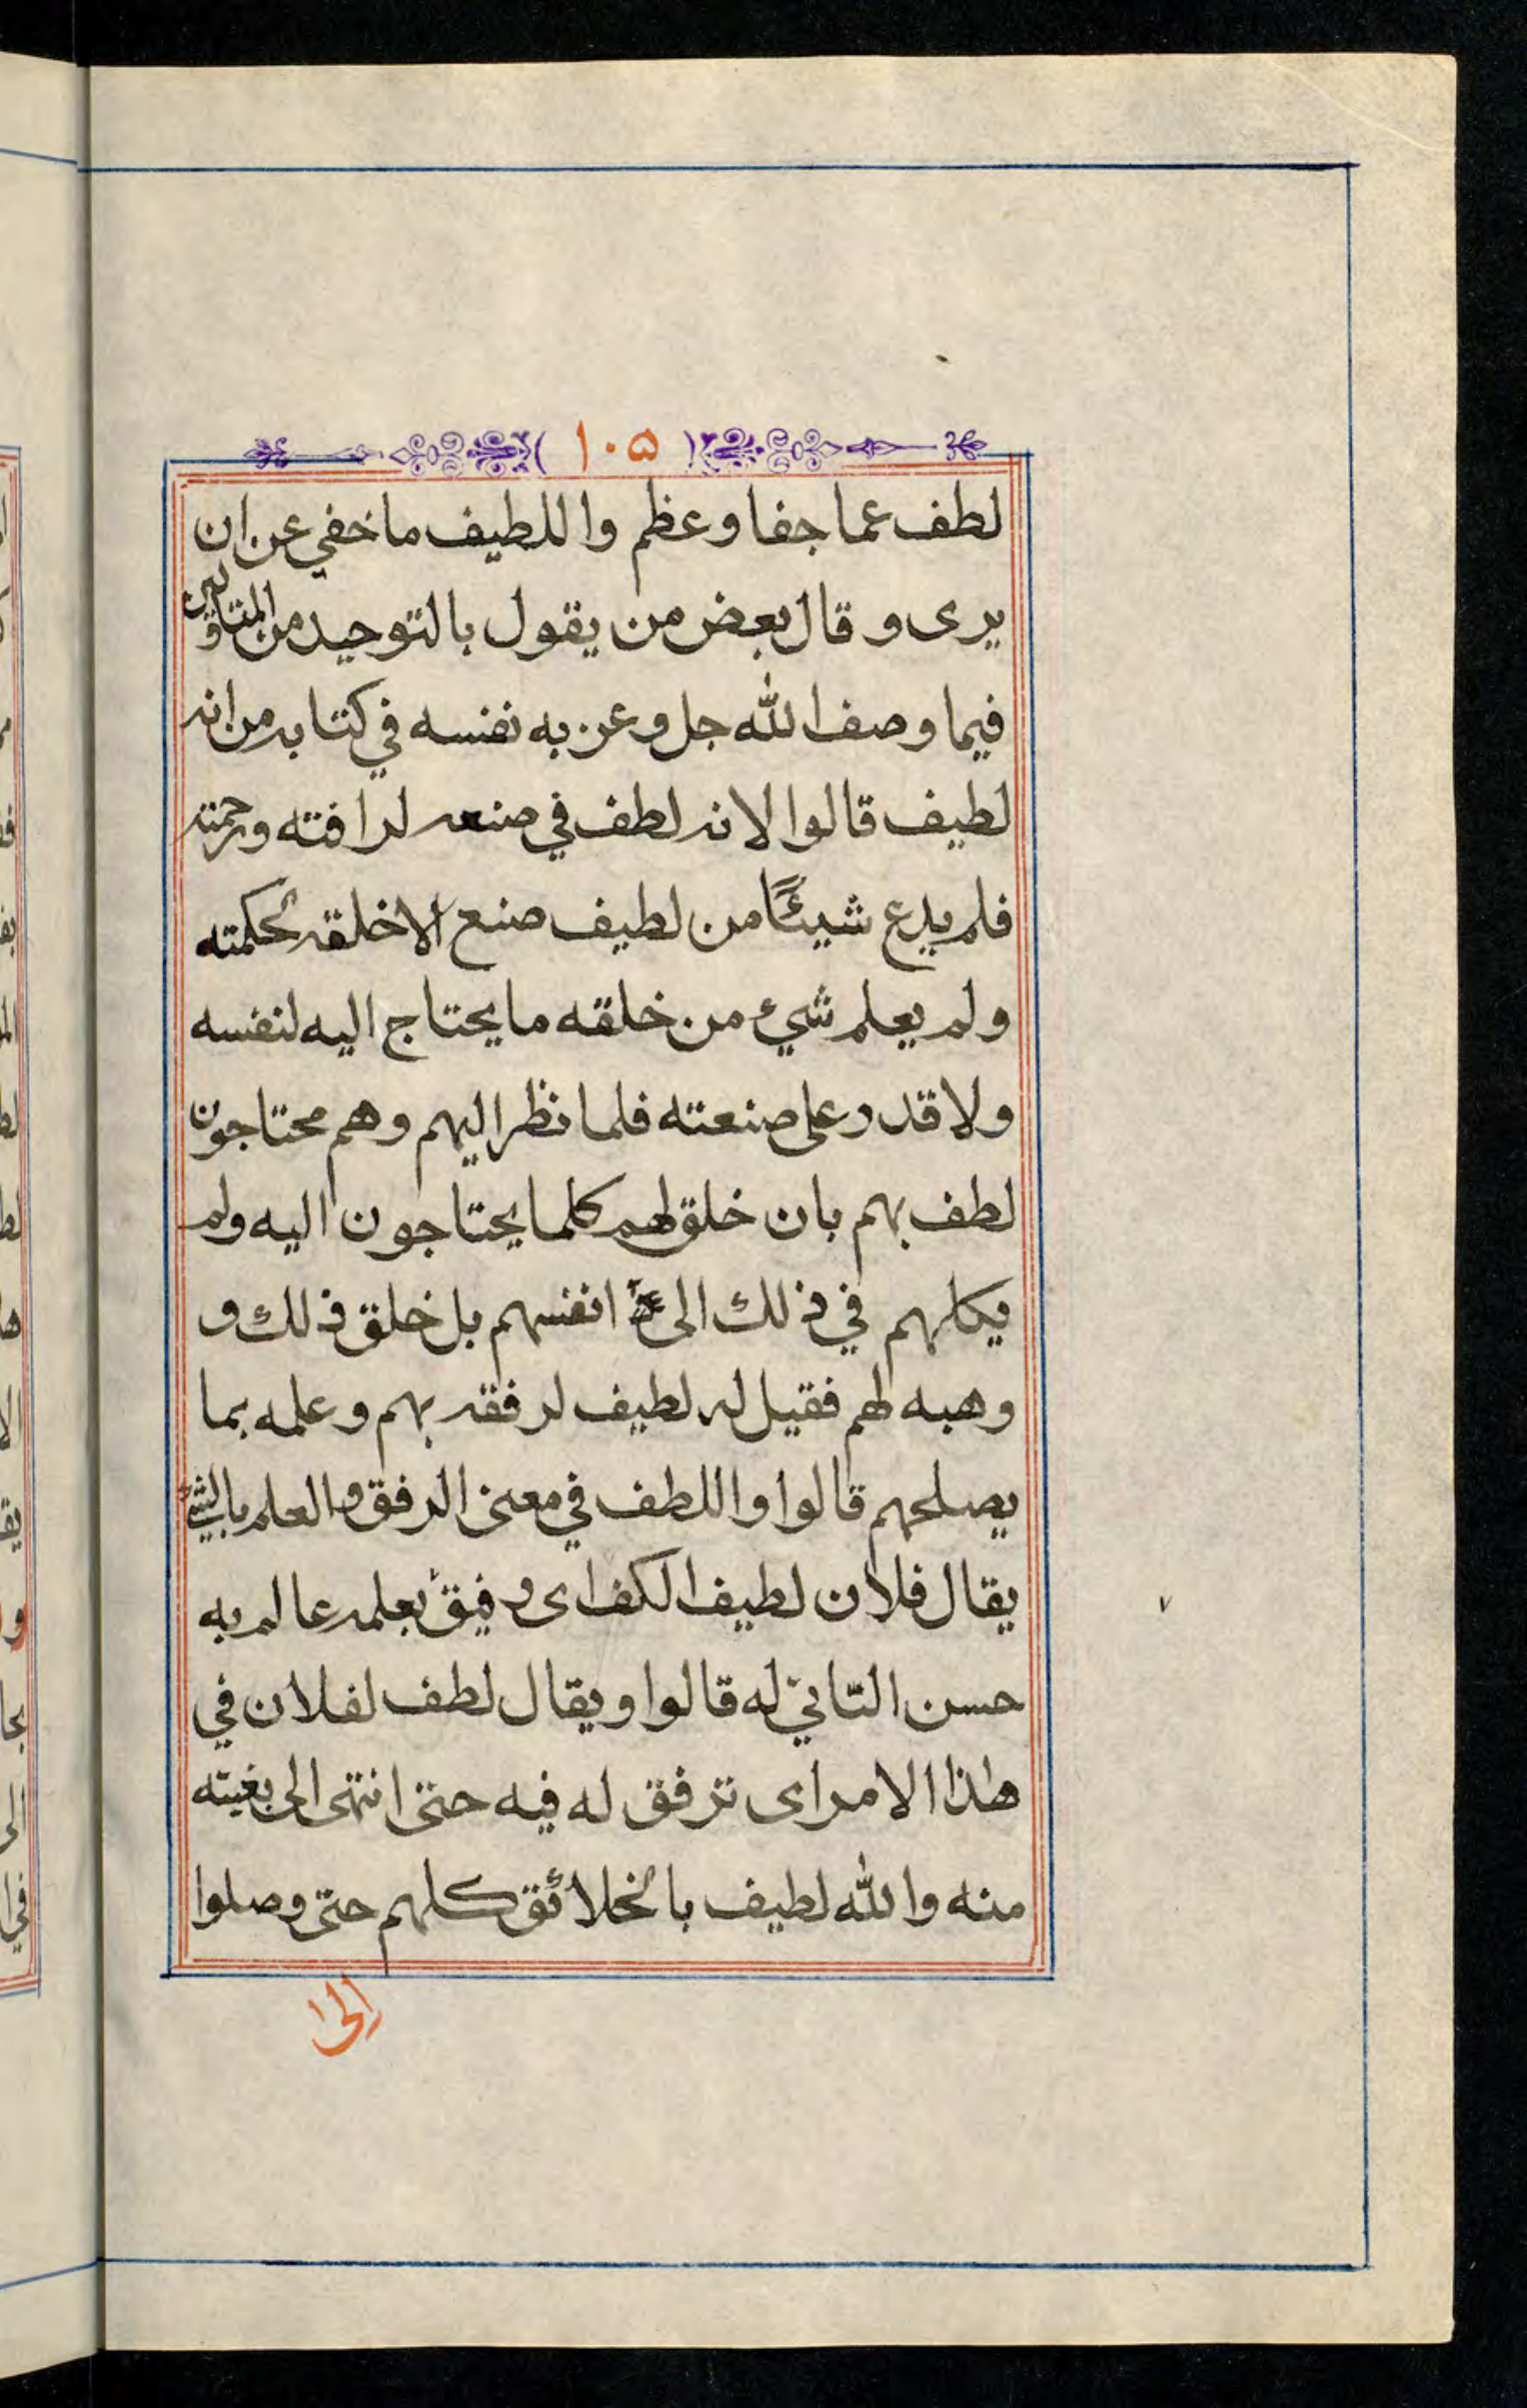 ١٠٥
لطف عما جفا وعظم واللطيف ما خفي عن ان
يرى وقال بعض من يقول بالتوحيد من
فيما وصف الله جل وعز به نفسه في كتابه من انه
لطيف قالوا لانه لطف في صنعه لرافته ورحمته
فلم يدع شيئًا من لطيف صنع الا خلقه بحكمته
ولم يعلم شيء من خلقه ما يحتاج اليه لنفسه
ولا قدر على صنعته فلما نظر اليهم وهم محتاجون
لطف بهم بان خلق لهم كلما يحتاجون اليه ولم
يكلهم في ذلك الى انفسهم بل خلق ذلك و
وهبه لهم فقيل له لطيف لرفقه بهم وعلمه بما
يصلحهم قالوا واللطف في معنى الرفق والعلم بالشيء
يقال فلان لطيف الكف اى رفيق بعلمه عالم به
حسن التاتيّ له قالوا ويقال لطف لفلان في
هذا الامر اى ترفق له فيه حتى انتهى الى بغيته
منه والله لطيف بالخلائق كلهم حتى وصلوا
الى